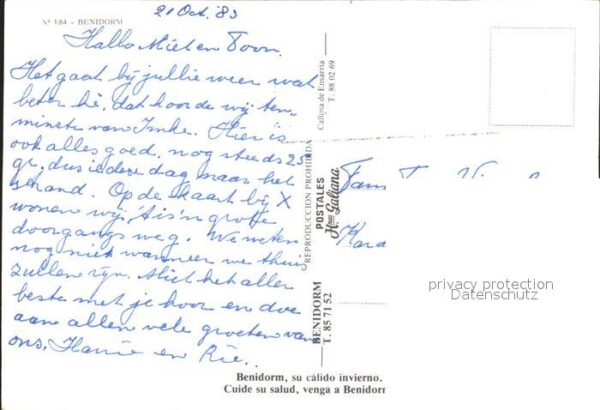 21 Oct. '83
Nº 184 - BENIDORM
Hallo Miet en Toon.
Het gaat bij jullie weer wat
beter hè, dat hoorde wij ten-
minste van Imke. Hier is
ook alles goed, nog steeds 25
gr, dus iedere dag naar het
strand. Op de kaart bij X
wonen wij, 't is 'n grote
doorgangsweg. We weten
nog niet wanneer we thuis
zullen zijn. Miet het aller
beste met je hoor en doe
aan allen vele groeten van
ons, Hannie en Rie..
BENIDORM
T. 85 71 52
REPRODUCCION PROHIBIDA
POSTALES
Hnos Galiana
Callosa de Ensarria
T. 88 02 69
Fam T
privacy protection
Datenschutz
Benidorm, su cálido invierno.
Cuide su salud, venga a Benidorm